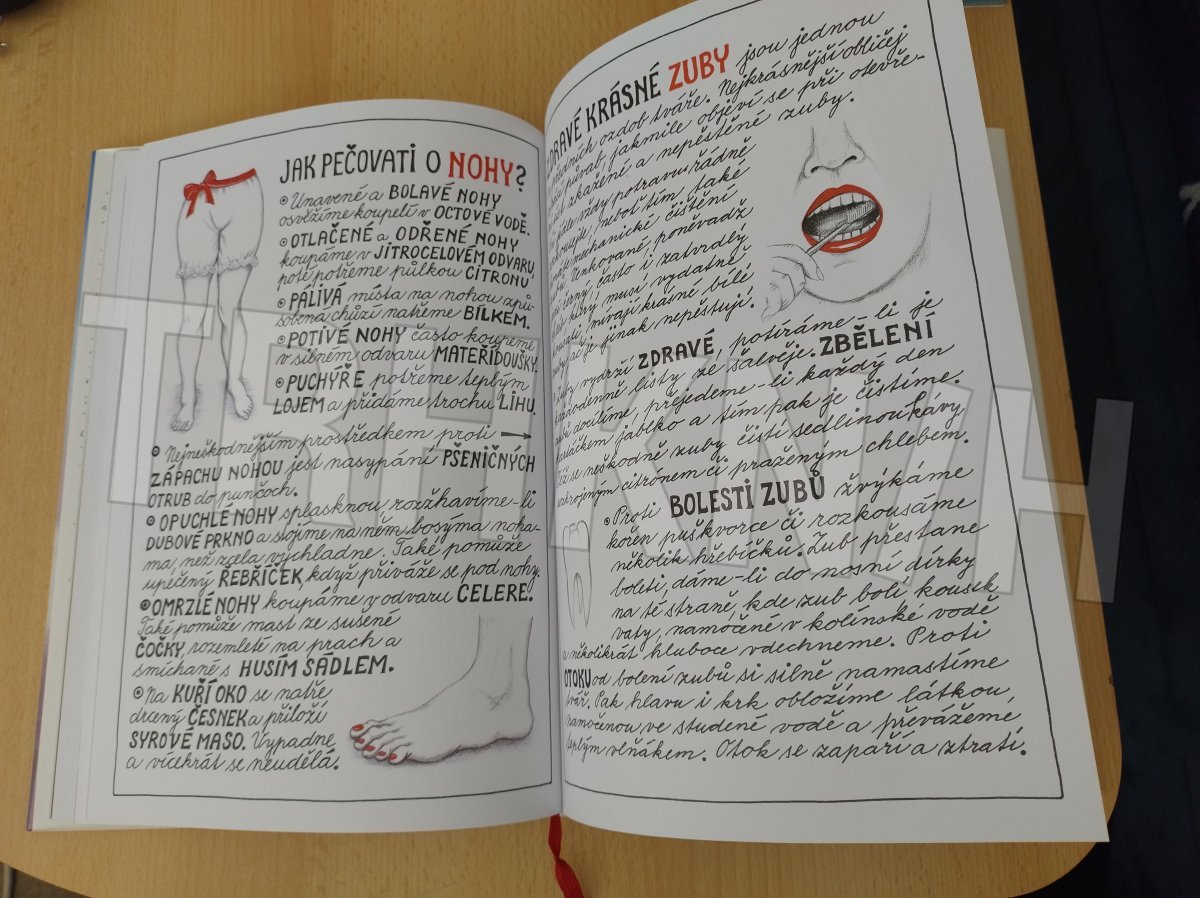 JAK PEČOVATI O NOHY?
Unavené a BOLAVÉ NOHY
osvěžíme koupelí v OCTOVÉ VODĚ.
OTLAČENÉ a ODŘENÉ NOHY
koupáme v JITROCELOVÉM ODVARU,
poté potřeme půlkou CITRONU
PÁLIVÁ místa na nohou způ-
sobená chůzí natřeme BÍLKEM.
POTIVÉ NOHY často koupeme
v silném odvaru MATEŘÍDOUŠKY.
PUCHÝŘE potřeme teplým
LOJEM a přidáme trochu LIHU.
Nejneškodnějším prostředkem proti →
ZÁPACHU NOHOU jest nasypání PŠENIČNÝCH
OTRUB do punčoch.
OPUCHLÉ NOHY splasknou rozžhavíme-li
DUBOVÉ PRKNO a stojíme na něm bosýma noha-
ma, než zcela vychladne. Také pomůže
upečený ŘEBŘÍČEK, když přiváže se pod nohy.
OMRZLÉ NOHY koupáme v odvaru CELERE.
Také pomůže mast ze sušené
ČOČKY, rozemleté na prach a
smíchané s HUSÍM SÁDLEM.
Na KUŘÍ OKO se natře
drcený ČESNEK a přiloží
SYROVÉ MASO. Vypadne
a vícekrát se neudělá.
DRAVÉ KRÁSNÉ ZUBY jsou jednou
ozdob tváře. Nejkrásnější obličej
půvab, jakmile objeví se při otevře-
zkažené a nepěstěné zuby.
jídle vždy potravu řádně
neboť tím také
mechanické čištění
Venkované, poněvadž
černý, často i zatvrdlý
který musí vydatně
mívají krásné bílé
je jinak nepěstují.
vydrží ZDRAVÉ, potíráme-li je
listy ze šalvěje. ZBĚLENÍ
docílíme, přejedeme-li každý den
jablko a tím pak je čistíme.
se neškodně zuby čistí sedlinou kávy
citrónem či praženým chlebem.
Proti BOLESTI ZUBŮ žvýkáme
kořen puškvorce či rozkousáme
několik hřebíčků. Zub přestane
boleti, dáme-li do nosní dírky
na té straně, kde zub bolí kousek
vaty, namočené v kolínské vodě
a několikrát hluboce vdechneme. Proti
OTOKU od bolení zubů si silně namastíme
tvář. Pak hlavu i krk obložíme látkou,
namočenou ve studené vodě a převážeme
teplým vlňákem. Otok se zapaří a ztratí.